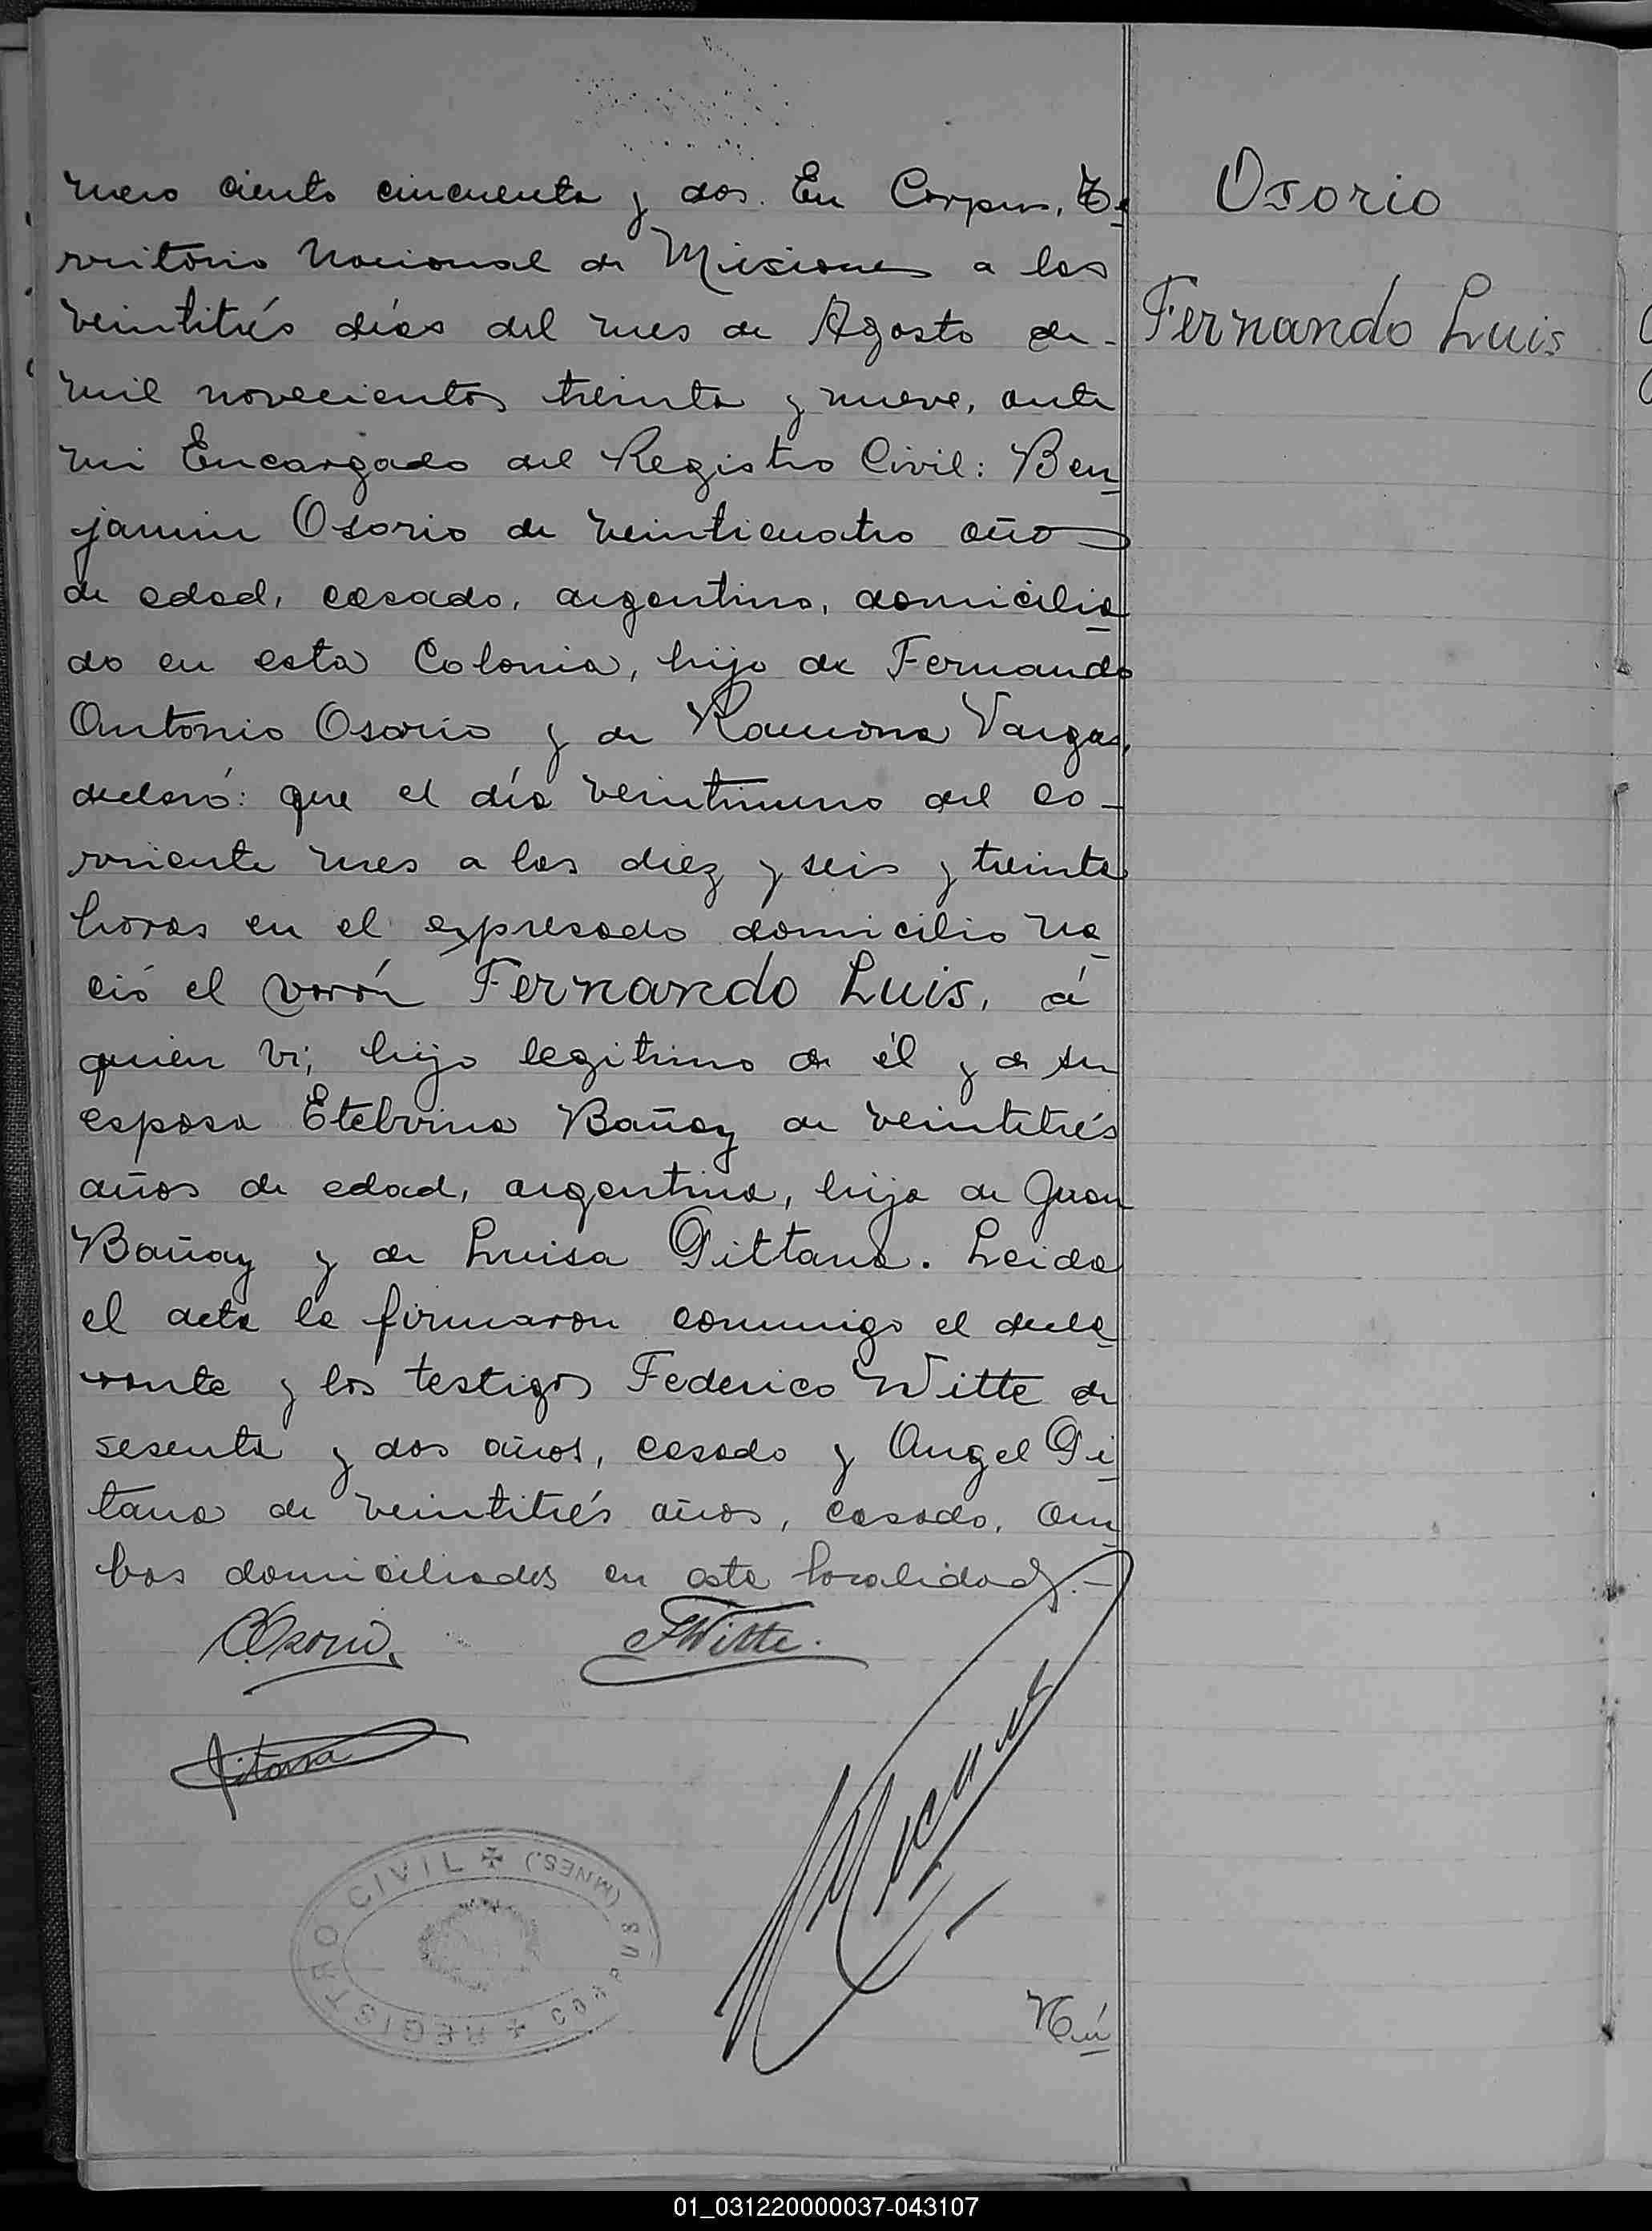 mero ciento cincuenta y dos. En Corpus, Te
rritorio Nacional de Misiones a los
veintitrés días del mes de Agosto de
mil novecientos treinta y nueve, ante
mi Encargado del Registro Civil: Ben
jamin Osorio de veinticuatro años
de edad, casado, argentino, domicilia
do en esta Colonia, hijo de Fernando
Antonio Osorio y de Ramona Vargas,
declaró: que el día veintiuno del co-
rriente mes a las diez y seis y treinta
horas en el expresado domicilio na
ció el varón Fernando Luis, á
quien vi, hijo legitimo de él y de su
esposa Etelvina Bañay de veintitrés
años de edad, argentina, hija de Juan
Bañay y de Luisa Pittana. Leida
el acta la firmaron conmigo el decla
rante y los testigos Federico Witte de
sesenta y dos años, casado y Angel Pi
tana de veintitrés años, casado, am
bos domiciliados en esta localidad.-
Osorio
Fernando Luis
BOsorio.
FWitte.
Pitana
REGISTRO CIVIL
CORPUS (MNES.)
Nú
01_031220000037-043107